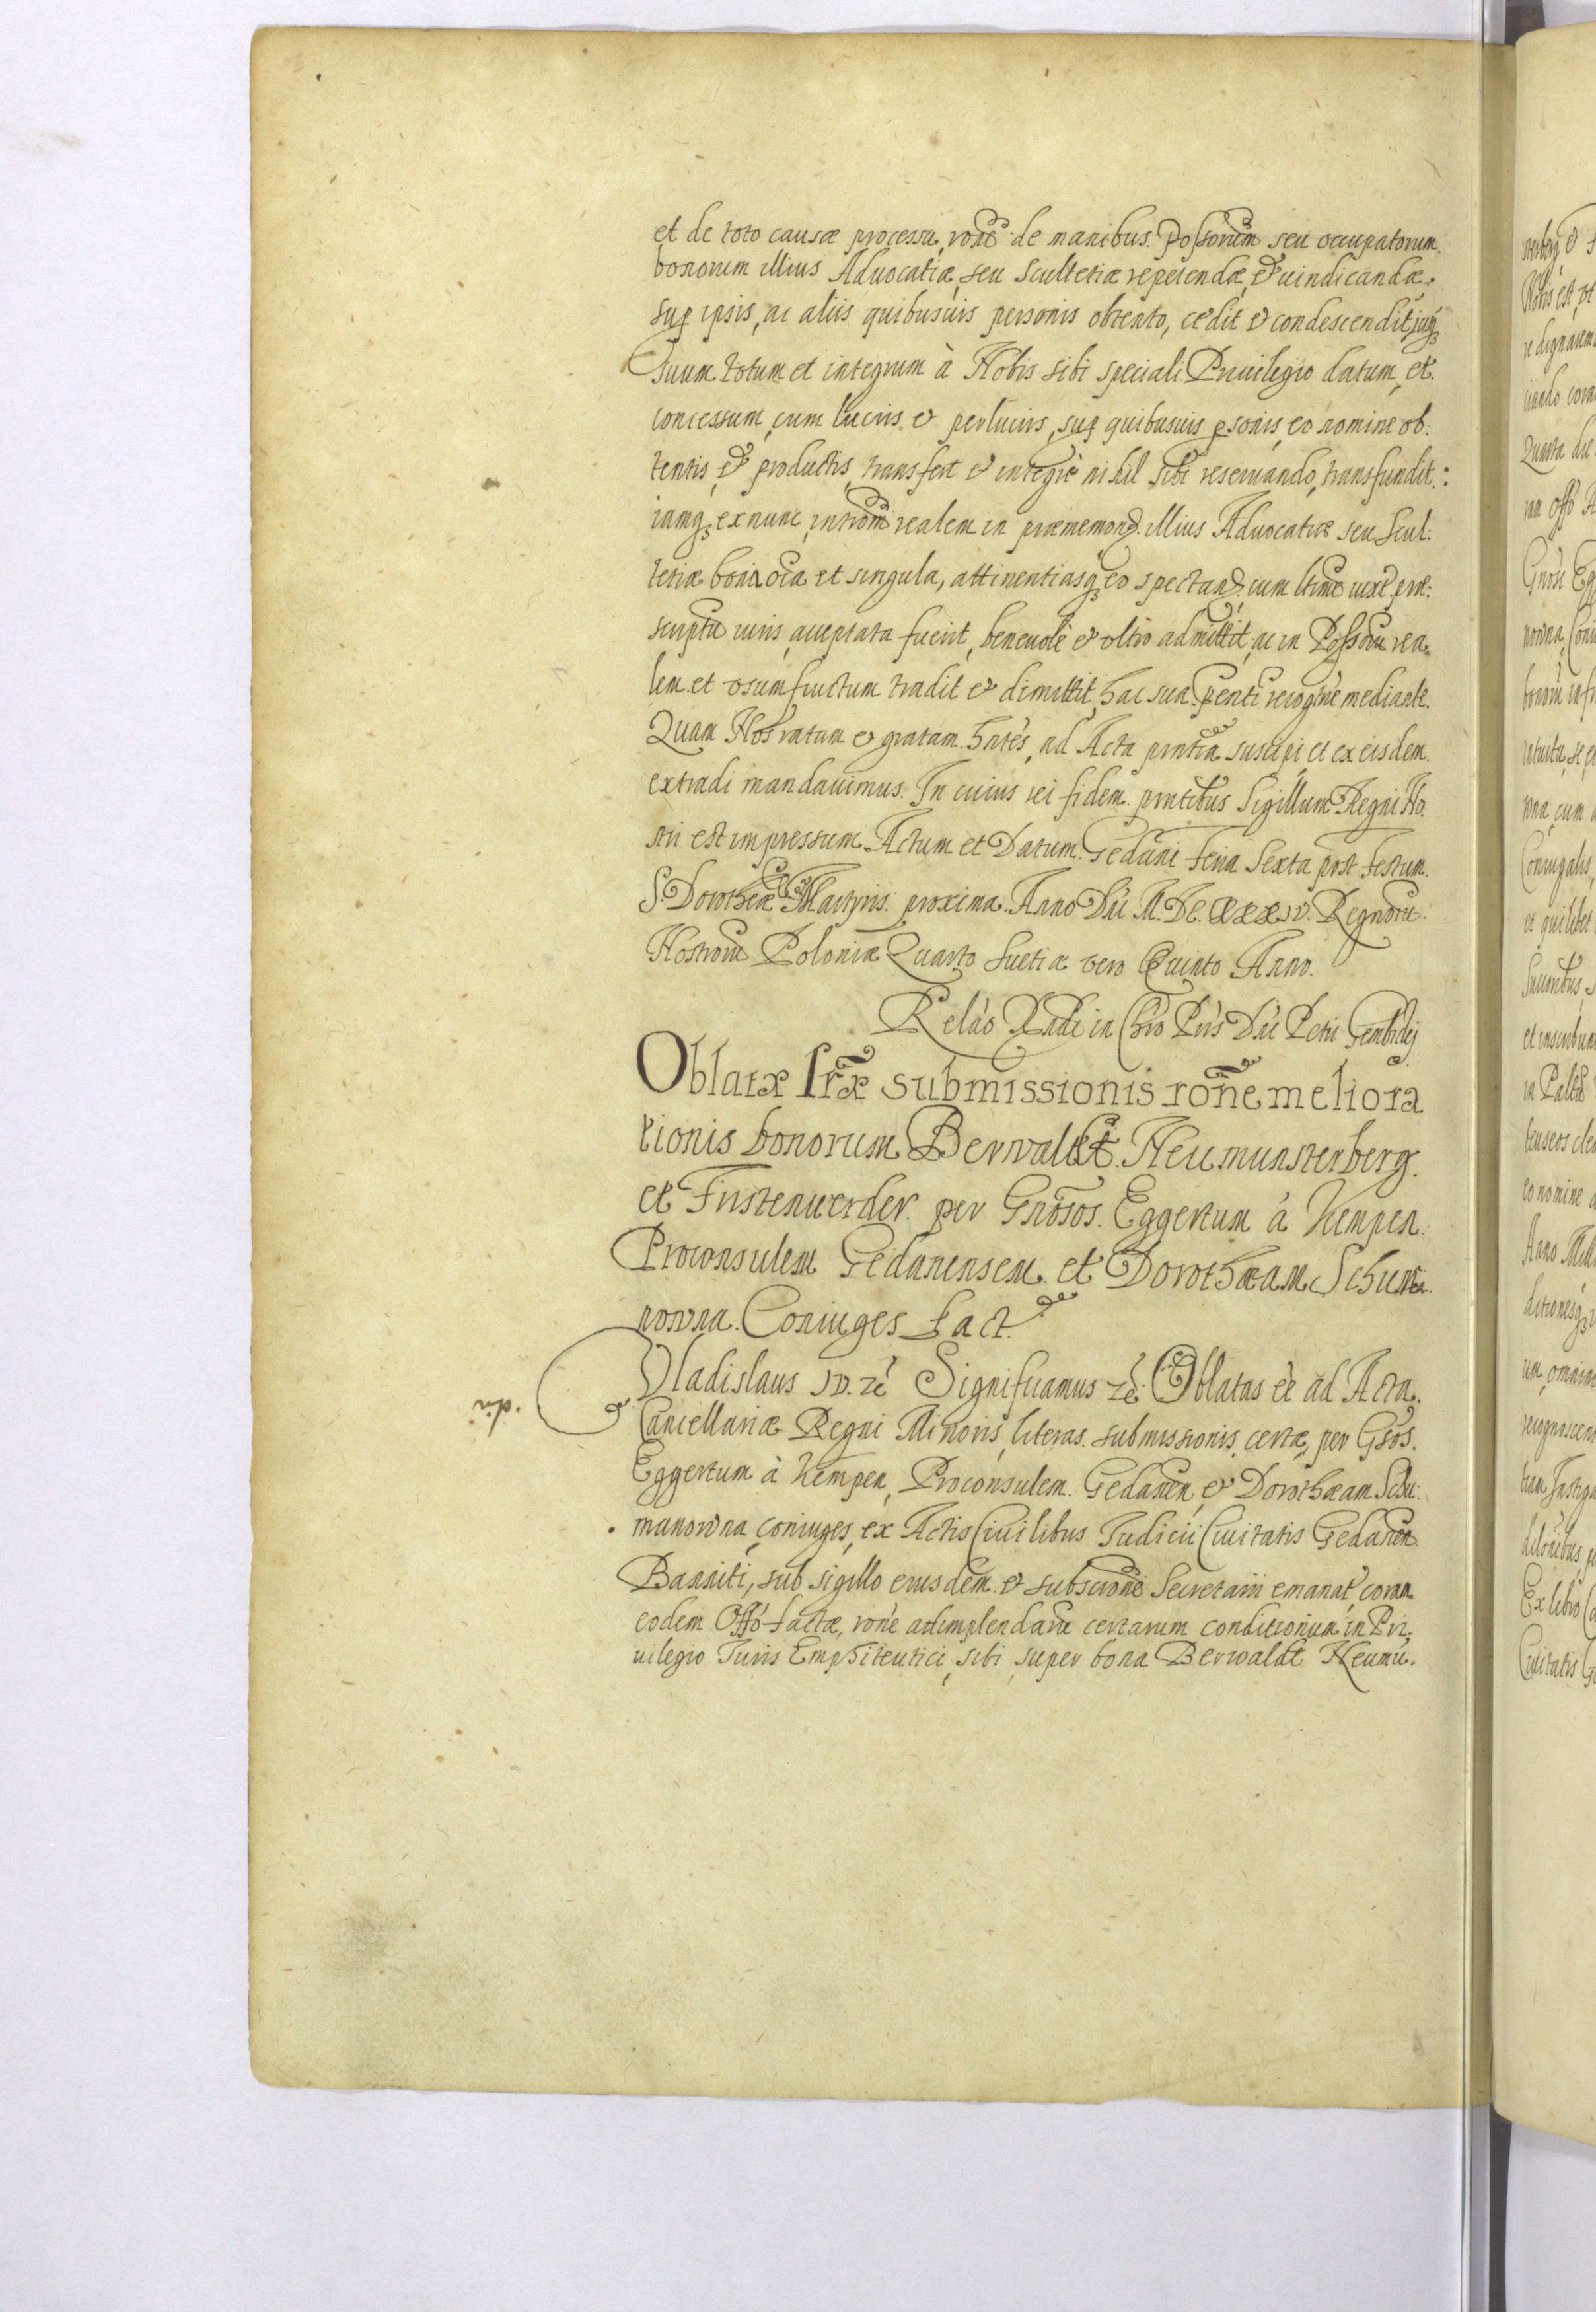 et de toto causæ processu, rōne de manibus Possorum seu occupatorum
bonorum illius Advocatiæ, seu Scultetiæ repetendæ, & vindicandæ
sup ipsis, ac aliis quibusuis personis obtento, cedit & condescendit, jusq3
suum totum et integrum à Nobis sibi speciali Priuilegio datum, et
concessum, cum lucris & perlucris, sup quibusuis psonis, eo nomine ob:
tentis, & productis, transfert & integrè nihil sibi reseruando, transfundit:
iamq3 ex nunc, intrōm realem in præmemorat. illius Advocatiæ seu Scul:
tetiæ bona oīa et singula, attinentiasq3 eo spectan. cum
scriptu iuris, acceptata fuerit, beneuolè & vltro admittit, ac in Possōm rea
lem et vsumfructum tradit & dimittit, hac sua pnti recogne mediante.
Quam Nos ratam & gratam hntes, ad Acta pntia suscipi, et ex eisdem
extradi mandauimus. In cuius rei fidem pntibus Sigillum Regni No
stri est impressum. Actum et Datum Gedani Feria Sexta post Festum
S. Dorotheæ Martyris proxima. Anno Dni M.DC.XXXIV. Regnoru
Nostrorū Poloniæ Quarto Suetiæ vero Quinto Anno.
Relāo Rndi in Chro Pris Dni Petri Gembicky
Oblatæ lræ submissionis rōne meliora
tionis bonorum Berwaldt. Neumunsterberg
et Firstenwerder per Gnosos Eggertum à Kempen
Proconsulem Gedanensem et Dorothæam Schuma
nowna Coniuges fact.
Vladislaus IV. rc Significamus rc Oblatas eē ad Acta
Cancellariæ Regni Minoris, literas submissionis certæ, per Gsos.
Eggertum à Kempen, Proconsulem Gedanen, & Dorothæam Schu:
manowna, coniuges, ex Actis Ciuilibus Iudicii Ciuitatis Gedanen
Banniti, sub sigillo eiusdem & subscrone Secretarii emanat, coram
eodem Offo factæ, rōne adimplendarū certarum conditionum in Pri
uilegio Iuris Emphiteutici, sibi super bona Berwaldt Neumu.